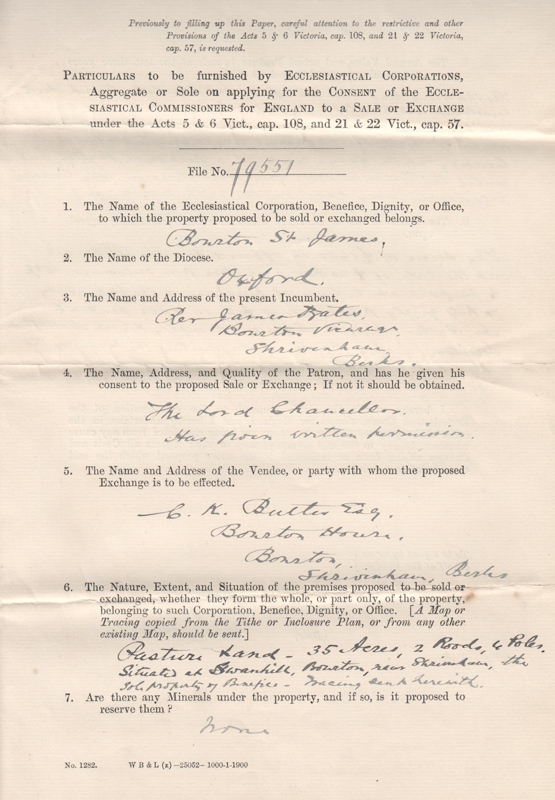 Previously to filling up this Paper, careful attention to the restrictive and other
Provisions of the Acts 5 & 6 Victoria, cap. 108, and 21 & 22 Victoria,
cap. 57, is requested.
PARTICULARS to be furnished by ECCLESIASTICAL CORPORATIONS,
Aggregate or Sole on applying for the CONSENT of the ECCLE-
SIASTICAL COMMISSIONERS for ENGLAND to a SALE or EXCHANGE
under the Acts 5 & 6 Vict., cap. 108, and 21 & 22 Vict., cap. 57.
File No. 79551
1. The Name of the Ecclesiastical Corporation, Benefice, Dignity, or Office,
to which the property proposed to be sold or exchanged belongs.
Bourton St James,
2. The Name of the Diocese.
Oxford.
3. The Name and Address of the present Incumbent.
Rev James
Bourton Vicarage,
Shrivenham,
Berks.
4. The Name, Address, and Quality of the Patron, and has he given his
consent to the proposed Sale or Exchange; If not it should be obtained.
The Lord Chancellor.
Has given written permission.
5. The Name and Address of the Vendee, or party with whom the proposed
Exchange is to be effected.
C. K. Butler Esq.
Bourton House,
Bourton,
Shrivenham, Berks
6. The Nature, Extent, and Situation of the premises proposed to be sold or
exchanged, whether they form the whole, or part only, of the property,
belonging to such Corporation, Benefice, Dignity, or Office. [A Map or
Tracing copied from the Tithe or Inclosure Plan, or from any other
existing Map, should be sent.]
Pasture Land - 35 Acres, 2 Roods, 4 Poles.
Situated at Swanhill, Bourton, near Shrivenham, the
property of Benefice - Tracing sent herewith.
7. Are there any Minerals under the property, and if so, is it proposed to
reserve them?
None
No. 1282. W B & L (x)—25052—1000-1-1900